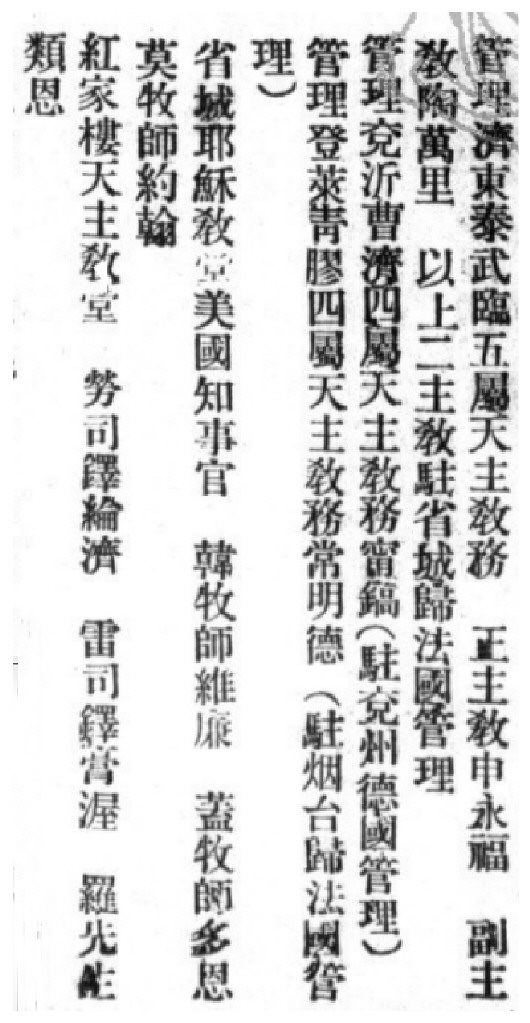 管理濟東泰武臨五屬天主敎務　正主敎申永福　副主
敎陶萬里　以上二主敎駐省城歸法國管理
管理兗沂曹濟四屬天主敎務甯鎬（駐兗州德國管理）
管理登萊靑膠四屬天主敎務常明德（駐烟台歸法國管
理）
省城耶穌敎堂美國知事官　韓牧師維廉　蓋牧師多恩
莫牧師約翰
紅家樓天主敎堂　勞司鐸綸濟　雷司鐸霑渥　羅先生
類恩